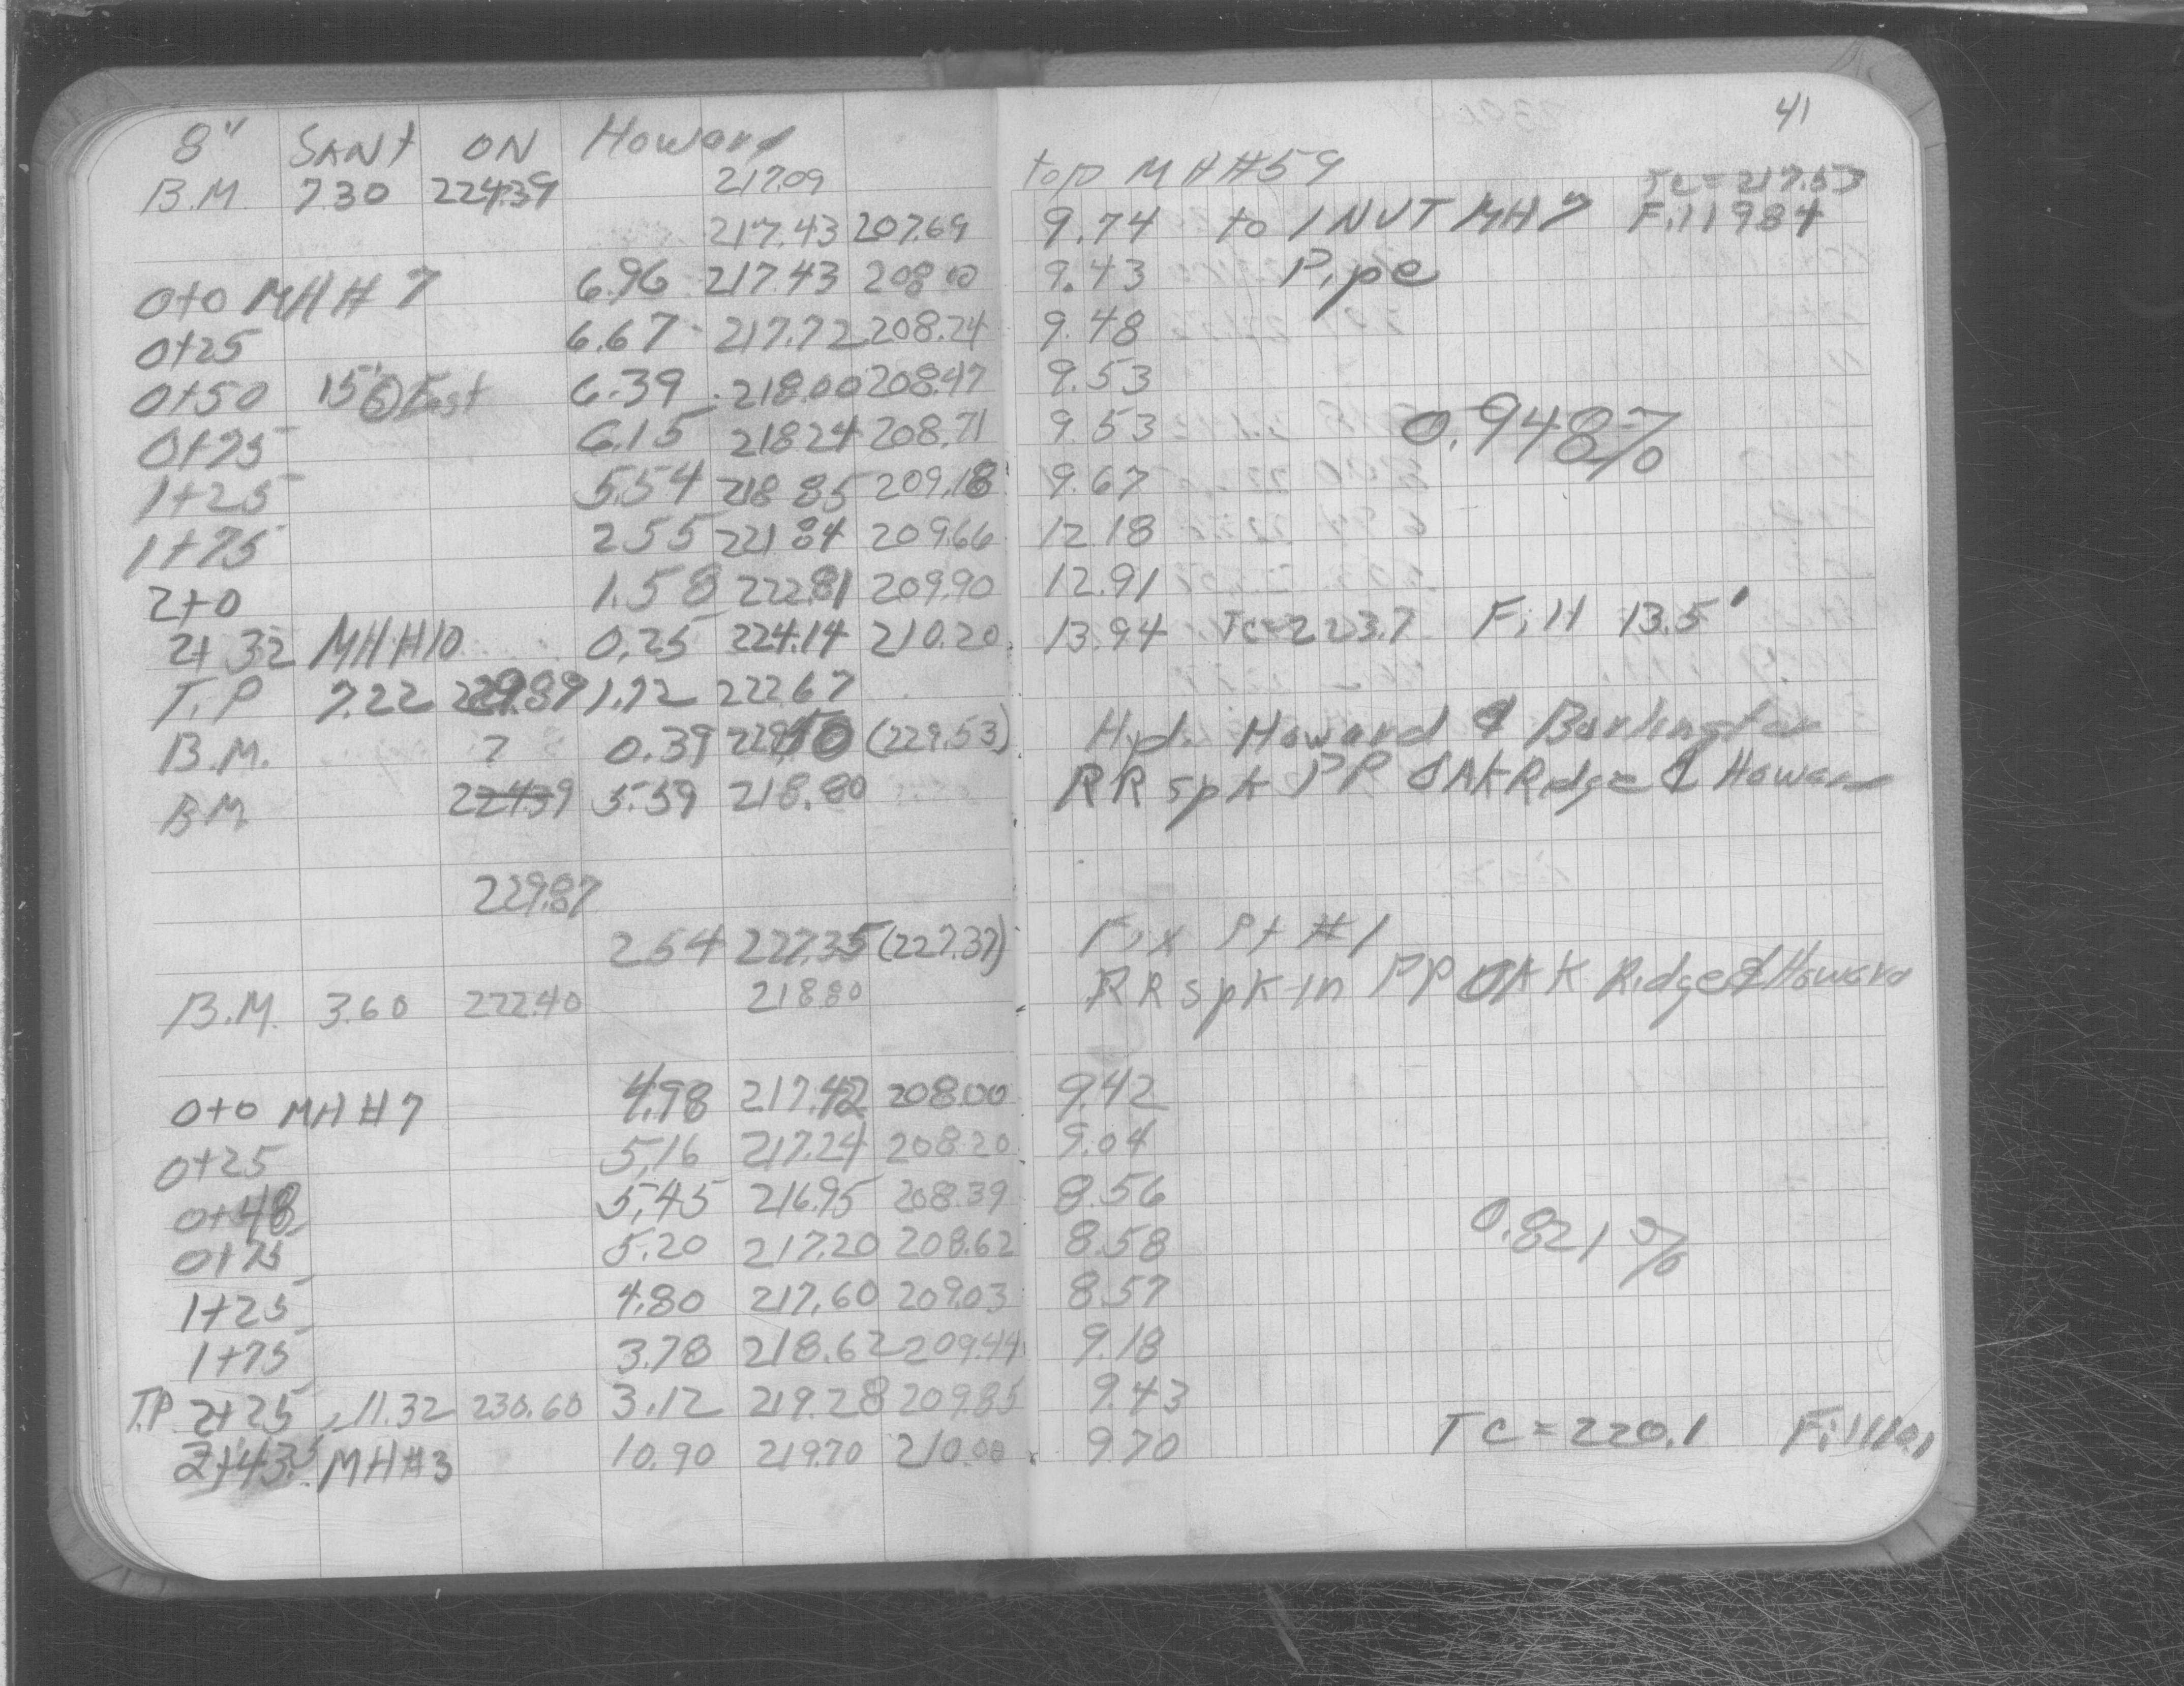 41
8" SANT ON Howard
B.M. 7.30 224.39 217.09 top MH#59 TC=217.53
217.43 207.69 9.74 to INVT MH7 Fill 9.84
0+0 MH#7 6.96 217.43 208.00 9.43 Pipe
0+25 6.67 217.72 208.24 9.48
0+50 15' East 6.39 218.00 208.47 9.53
0+75 6.15 218.24 208.71 9.53 0.948%
1+25 5.54 218.85 209.18 9.67
1+75 2.55 221.84 209.66 12.18
2+0 1.58 222.81 209.90 12.91
2+32 MH#10 0.25 224.14 210.20 13.94 TC=223.7 Fill 13.5'
T.P 7.22 229.89 1.72 222.67
B.M. ? 0.39 229.50 (229.53) Hyd. Howard & Burlington
BM 224.39 5.59 218.80 RR spk PP OAK Ridge & Howard
229.87
2.54 227.35 (227.37) Fix Pt #1
B.M. 3.60 222.40 218.80 RR spk in PP OAK Ridge & Howard
0+0 MH#7 4.98 217.42 208.00 9.42
0+25 5.16 217.24 208.20 9.04
0+48 5.45 216.95 208.39 8.56
0+75 5.20 217.20 208.62 8.58 0.821%
1+25 4.80 217.60 209.03 8.57
1+75 3.78 218.62 209.44 9.18
T.P 2+25 11.32 230.60 3.12 219.28 209.85 9.43
2+43.5 MH#3 10.90 219.70 210.00 9.70 TC=220.1 Fill 10.1